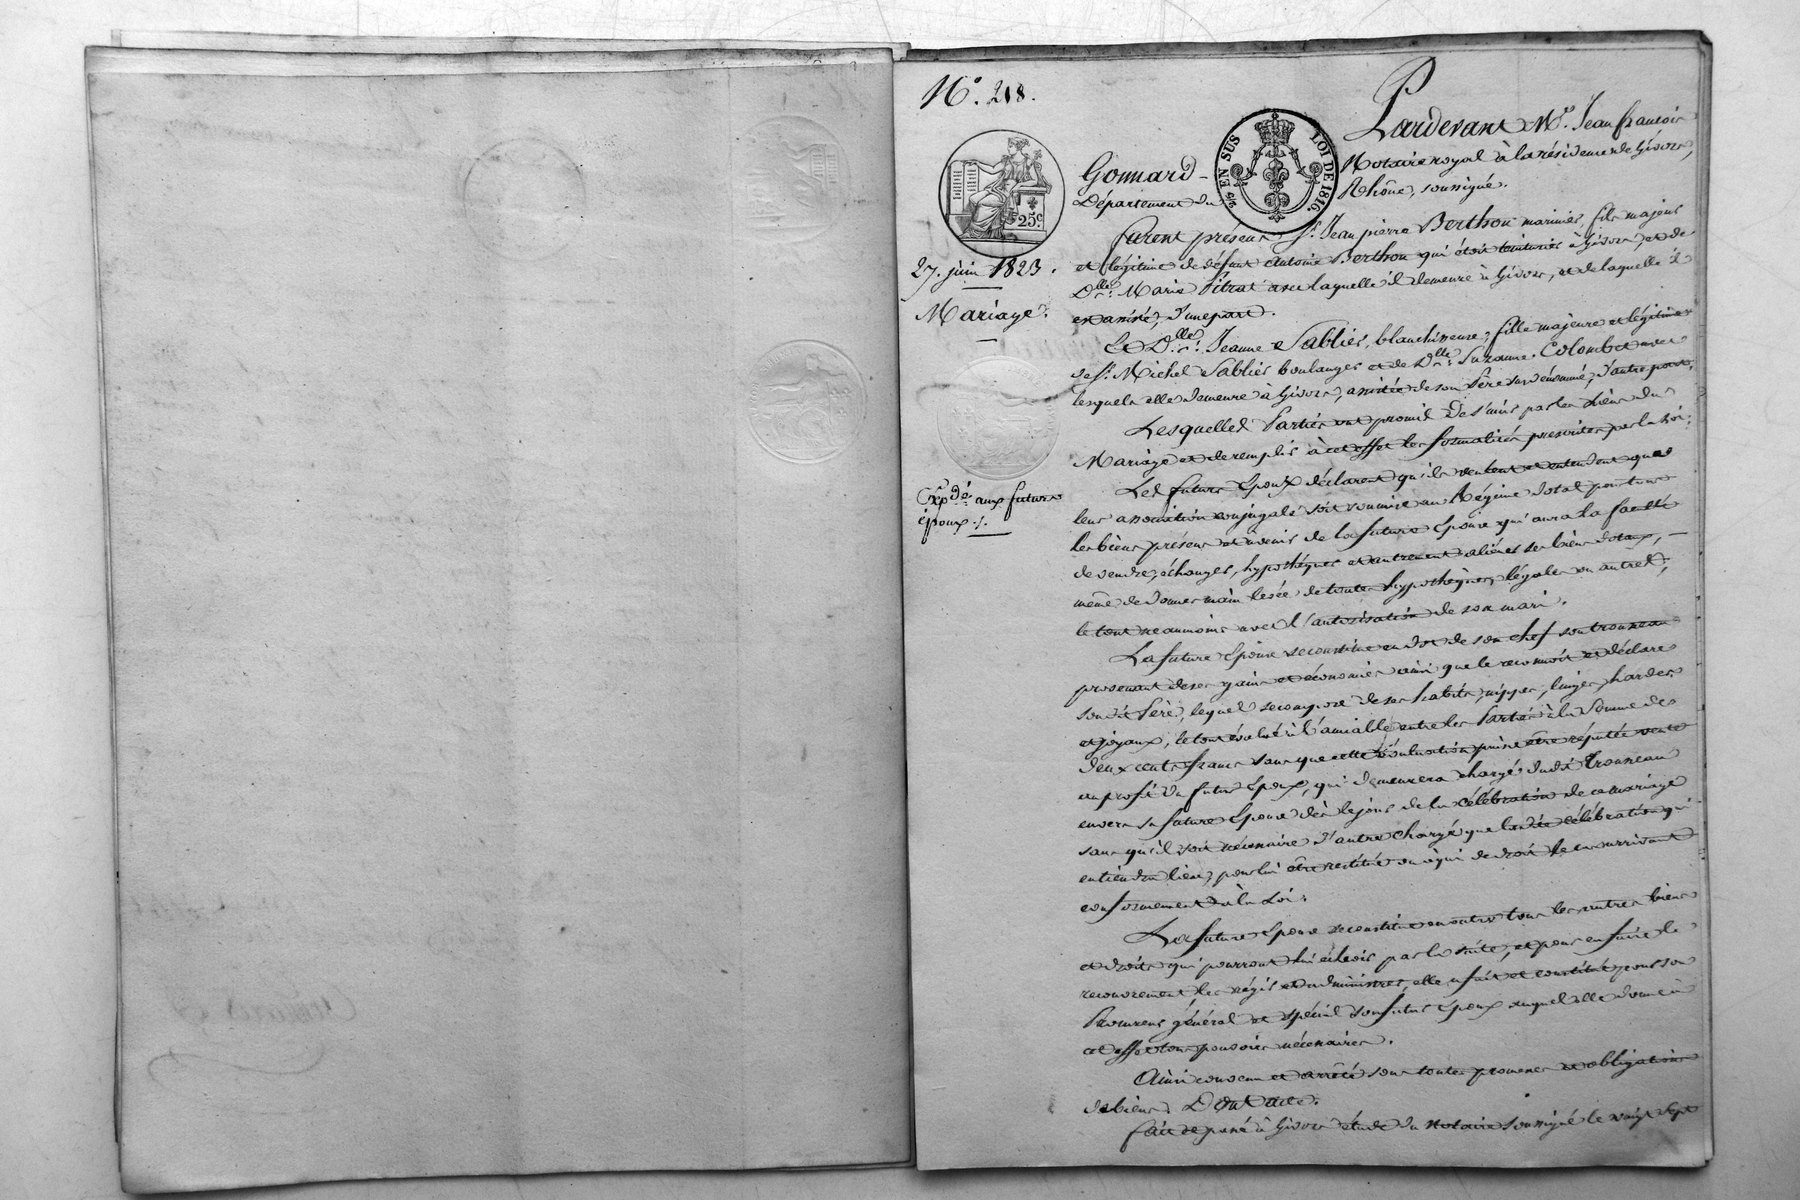 N.° 218.
27. juin 1823.
Mariage.
Exp.dé aux futurs
époux ./.
25c.
EN SUS
LOI DE 1816.
Pardevant M.e Jean françois
Gonnard Notaire royal à la résidence de Givors,
Département du Rhône, soussigné.
furent présens S.r Jean pierre Berthon marinier, fils majeur
et légitime de défunt Antoine Berthon qui étoit teinturier à Givors, et de
D.lle Marie Pitrat avec laquelle il demeure à Givors, et de laquelle il
est assisté, d'une part.
Et D.lle Jeanne Sablier, blanchisseuse, fille majeure et légitime
de S.r Michel Sablier boulanger et de D.lle Suzanne Colombet avec
lesquels elle demeure à Givors, assistée de son Père susdénommé, d'autre part.
Lesquelles Parties ont promis de s'unir par les liens du
Mariage et de remplir à cet effet les formalités prescrites par la Loi.
Les futurs Epoux déclarent qu'ils veulent et entendent que
leur association conjugale soit soumise au Régime dotal pour tous
les biens présens et à venir de la future Epouse qui aura la faculté
de vendre, échanger, hypothéquer et autrement aliéner ses biens dotaux, —
même de donner main levée de toutes hypothèques légales ou autres,
le tout néanmoins avec l'autorisation de son mari.
La future Epouse se constitue en dot de son chef son trousseau
provenant de ses gains et économies ainsi que le reconnoit et déclare
son dit Père, lequel se compose de ses habits, nippes, linges, hardes
et joyaux, le tout évalué à l'amiable entre les Parties à la Somme de
deux cents francs sans que cette évaluation puisse être réputée vente
au profit du futur Epoux, qui demeurera chargé dudit Trousseau
envers sa future Epouse dès le jour de la célébration de ce mariage
sans qu'il soit nécessaire d'autre charge que lad.te célébration qui
en tiendra lieu, pour lui être restitué ou à qui de droit le cas arrivant
conformément à la Loi.
La future Epouse se constitue en outre tous les autres biens
et droits qui pourront lui échoir par la suite, et pour en faire le
recouvrement les régir et administrer, elle a fait et constitué pour son
Procureur général et spécial son futur Epoux auquel elle donne à
cet effet tous pouvoirs nécessaires.
Ainsi convenu et arrêté sous toutes promesses et obligations
de biens. Dont acte.
fait et passé à Givors étude du notaire soussigné le vingt sept